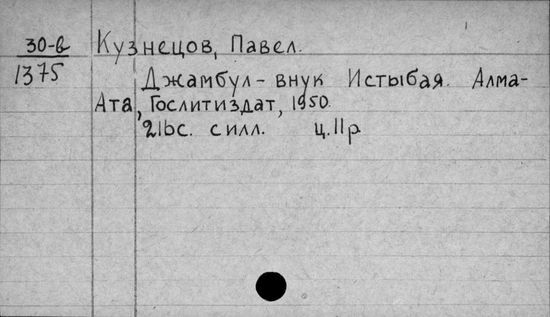 30-в Кузнецов, Павел.
1375
Джамбул - внук Истыбая. Алма-
Ата, Гослитиздат, 1950.
216с. с илл. ц. 11р